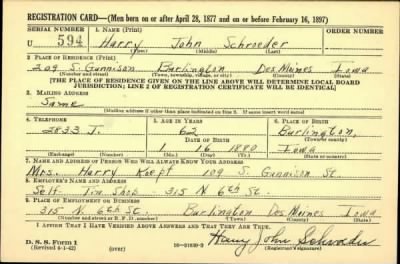 REGISTRATION CARD—(Men born on or after April 28, 1877 and on or before February 16, 1897)
SERIAL NUMBER 1. NAME (Print) ORDER NUMBER
U 594 Harry John Schroeder
(First) (Middle) (Last)
2. PLACE OF RESIDENCE (Print)
209 S. Gunnison Burlington Des Moines Iowa
(Number and street) (Town, township, village, or city) (County) (State)
[THE PLACE OF RESIDENCE GIVEN ON THE LINE ABOVE WILL DETERMINE LOCAL BOARD
JURISDICTION; LINE 2 OF REGISTRATION CERTIFICATE WILL BE IDENTICAL]
3. MAILING ADDRESS
Same
(Mailing address if other than place indicated on line 2. If same insert word same)
4. TELEPHONE 5. AGE IN YEARS 6. PLACE OF BIRTH
2833 J. 62 Burlington,
DATE OF BIRTH (Town or county)
1 16 1880 Iowa
(Exchange) (Number) (Mo.) (Day) (Yr.) (State or country)
7. NAME AND ADDRESS OF PERSON WHO WILL ALWAYS KNOW YOUR ADDRESS
Mrs. Harry 109 S. Gunnison St.
8. EMPLOYER'S NAME AND ADDRESS
Self Tin Shop 315 N. 6th St.
9. PLACE OF EMPLOYMENT OR BUSINESS
315 N. 6th St. Burlington Des Moines Iowa
(Number and street or R. F. D. number) (Town) (County) (State)
I AFFIRM THAT I HAVE VERIFIED ABOVE ANSWERS AND THAT THEY ARE TRUE.
D. S. S. Form 1
(Revised 4-1-42) (over) Harry John Schroeder
(Registrant's signature)